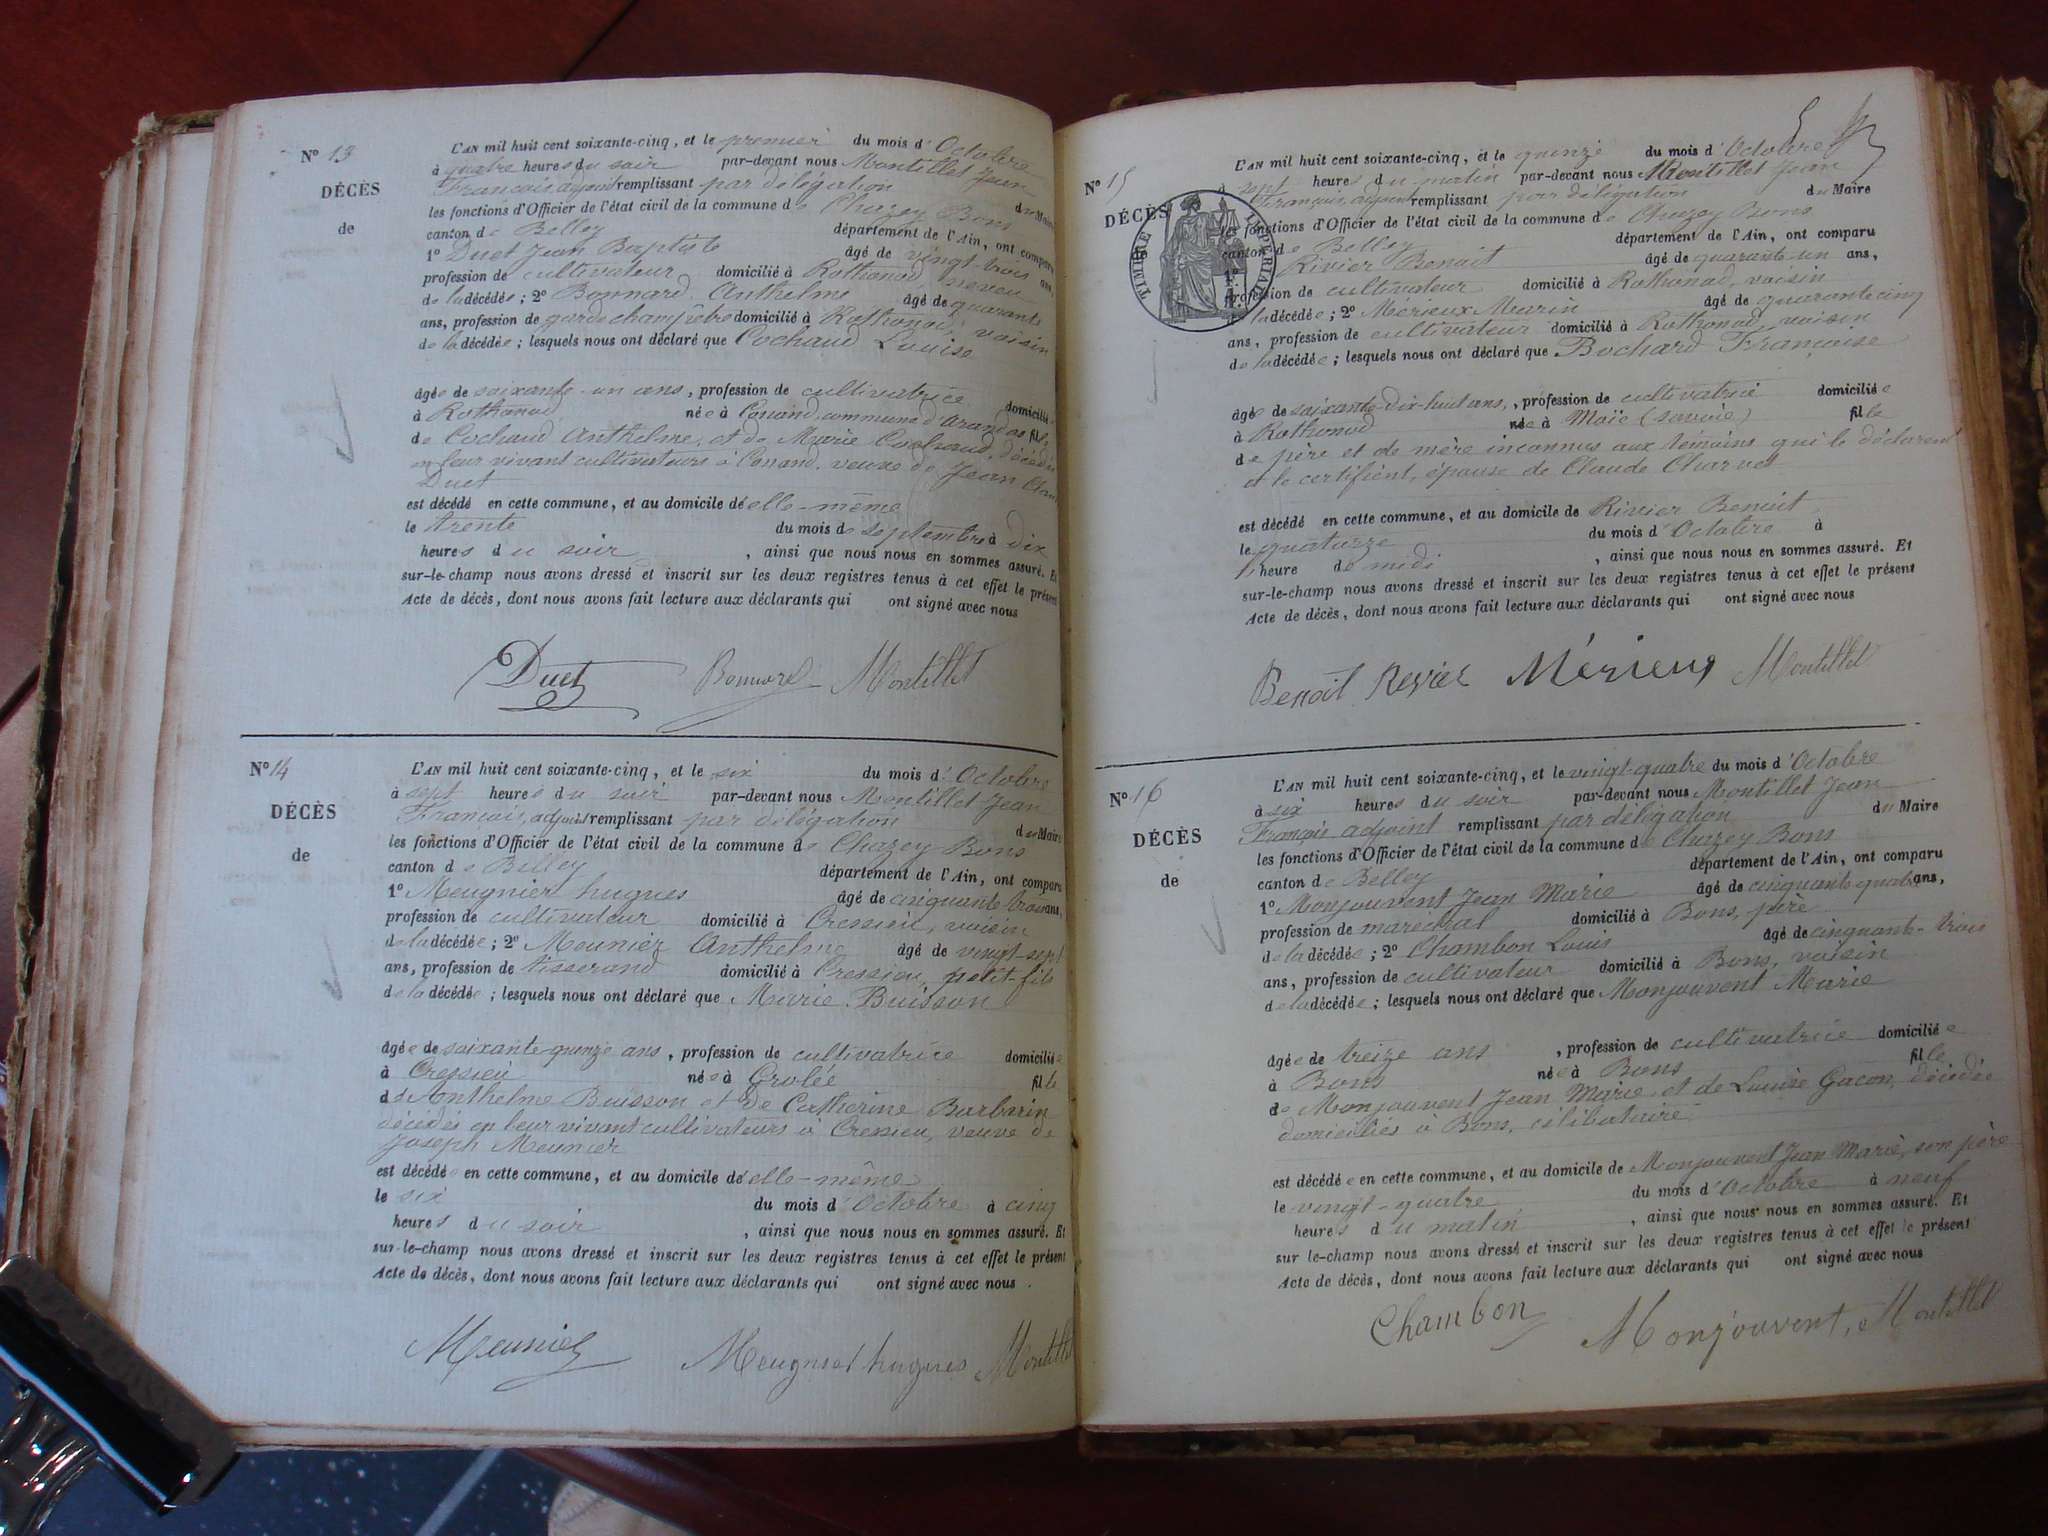 N° 13
DÉCÈS
de
L'AN mil huit cent soixante-cinq, et le premier du mois d'Octobre
à quatre heures du soir par-devant nous Montillet Jean
François, adjoint remplissant par délégation du Maire
les fonctions d'Officier de l'état civil de la commune de Chazey Bons
canton de Belley département de l'Ain, ont comparu
1° Duet Jean Baptiste âgé de vingt-trois ans,
profession de cultivateur domicilié à Rothonod, neveu
de la décédée ; 2° Bonnard Anthelme âgé de quarante
ans, profession de garde champêtre domicilié à Rothonod, voisin
de la décédée ; lesquels nous ont déclaré que Cochaud Louise
âgée de soixante-un ans, profession de cultivatrice domiciliée
à Rothonod née à Conand, commune d'Arandas fille
de Cochaud Anthelme, et de Marie Cochaud, décédés
en leur vivant cultivateurs à Conand, veuve de Jean Claude
Duet
est décédé en cette commune, et au domicile de elle-même
le trente du mois de septembre à dix
heures du soir, ainsi que nous nous en sommes assuré. Et
sur-le-champ nous avons dressé et inscrit sur les deux registres tenus à cet effet le présent
Acte de décès, dont nous avons fait lecture aux déclarants qui ont signé avec nous
Duet Bonnard Montillet
N° 14
DÉCÈS
de
L'AN mil huit cent soixante-cinq, et le six du mois d'Octobre
à sept heures du soir par-devant nous Montillet Jean
François, adjoint remplissant par délégation du Maire
les fonctions d'Officier de l'état civil de la commune de Chazey Bons
canton de Belley département de l'Ain, ont comparu
1° Meugnier hugues âgé de cinquante trois ans,
profession de cultivateur domicilié à Cressieu, voisin
de la décédée ; 2° Meunier Anthelme âgé de vingt-sept
ans, profession de tisserand domicilié à Cressieu, petit-fils
de la décédée ; lesquels nous ont déclaré que Marie Buisson
âgée de soixante-quinze ans, profession de cultivatrice domiciliée
à Cressieu née à Grolée fille
d d'Anthelme Buisson et de Catherine Barbarin
décédés en leur vivant cultivateurs à Cressieu, veuve de
Joseph Meunier
est décédée en cette commune, et au domicile de elle-même
le six du mois d'Octobre à cinq
heures du soir, ainsi que nous nous en sommes assuré. Et
sur-le-champ nous avons dressé et inscrit sur les deux registres tenus à cet effet le présent
Acte de décès, dont nous avons fait lecture aux déclarants qui ont signé avec nous.
Meunier Meugniet hugues Montillet
5
N° 15
DÉCÈS
TIMBRE IMPERIAL
L'AN mil huit cent soixante-cinq, et le quinze du mois d'Octobre
à sept heures du matin par-devant nous Montillet Jean
François, adjoint remplissant par délégation du Maire
les fonctions d'Officier de l'état civil de la commune de Chazey Bons
canton de Belley département de l'Ain, ont comparu
1° Rivier Benoit âgé de quarante-un ans,
profession de cultivateur domicilié à Rothonod, voisin
de la décédée ; 2° Mérieux Marin âgé de quarante cinq
ans, profession de cultivateur domicilié à Rothonod, voisin
de la décédée ; lesquels nous ont déclaré que Bochard Françoise
âgée de soixante-dix-huit ans, profession de cultivatrice domiciliée
à Rothonod née à Moïe (Savoie) fille
de père et de mère inconnus aux témoins qui le déclarent
et le certifient, épouse de Claude Charvet
est décédé en cette commune, et au domicile de Rivier Benoit
le quatorze du mois d'Octobre à
heure de midi, ainsi que nous nous en sommes assuré. Et
sur-le-champ nous avons dressé et inscrit sur les deux registres tenus à cet effet le présent
Acte de décès, dont nous avons fait lecture aux déclarants qui ont signé avec nous
Benoît Revier Mérieux Montillet
N° 16
DÉCÈS
de
L'AN mil huit cent soixante-cinq, et le vingt-quatre du mois d'Octobre
à six heures du soir par-devant nous Montillet Jean
François, adjoint remplissant par délégation du Maire
les fonctions d'Officier de l'état civil de la commune de Chazey Bons
canton de Belley département de l'Ain, ont comparu
1° Monjouvent Jean Marie âgé de cinquante quatre ans,
profession de maréchal domicilié à Bons, père
de la décédée ; 2° Chambon Louis âgé de cinquante-trois
ans, profession de cultivateur domicilié à Bons, voisin
de la décédée ; lesquels nous ont déclaré que Monjouvent Marie
âgée de treize ans, profession de cultivatrice domiciliée
à Bons née à Bons fille
de Monjouvent Jean Marie, et de Louise Gacon, décédée
domiciliés à Bons, célibataire
est décédée en cette commune, et au domicile de Monjouvent Jean Marie, son père
le vingt-quatre du mois d'Octobre à neuf
heures du matin, ainsi que nous nous en sommes assuré. Et
sur le-champ nous avons dressé et inscrit sur les deux registres tenus à cet effet le présent
Acte de décès, dont nous avons fait lecture aux déclarants qui ont signé avec nous
Chambon Monjouvent, Montillet